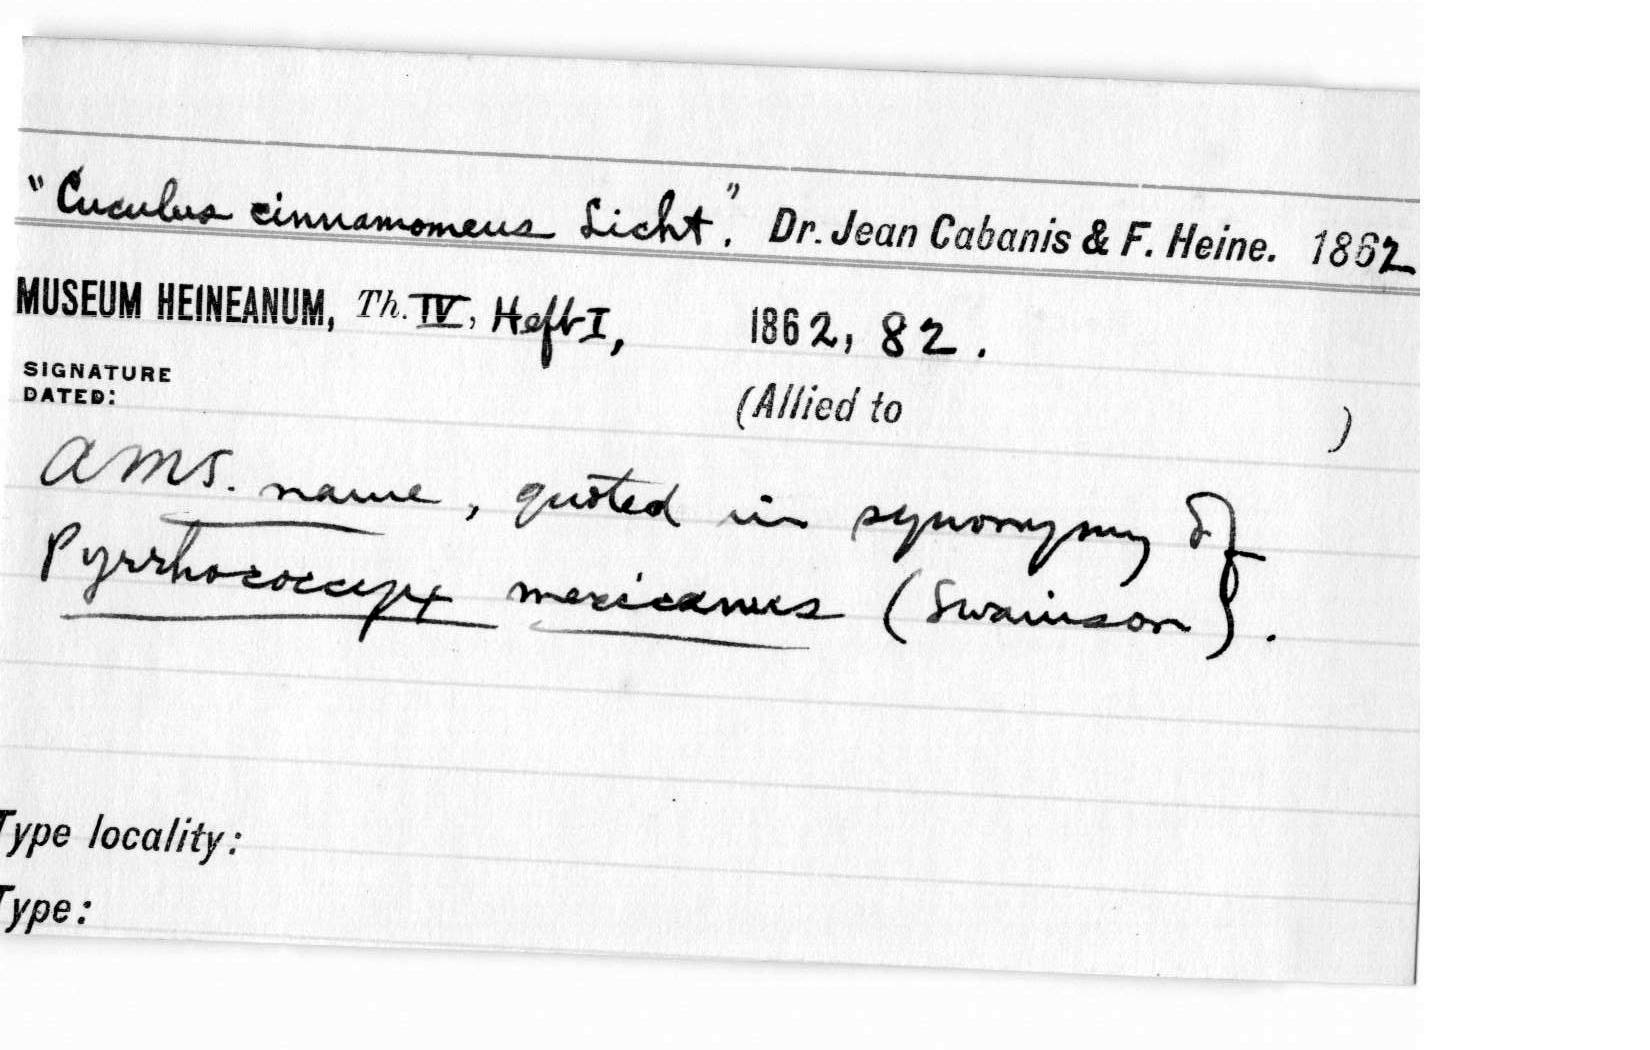 "Cuculus cinnamomeus Licht". Dr. Jean Cabanis & F. Heine. 1862
MUSEUM HEINEANUM, Th. IV, Heft I, 1862, 82.
SIGNATURE
DATED:
(Allied to )
A MS. name, quoted in synonymy of
Pyrrhococcyx mexicanus (Swainson).
Type locality:
Type: